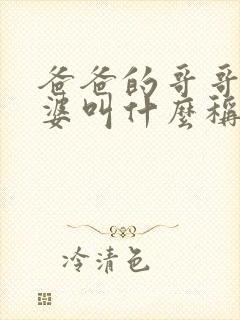 爸爸的哥哥
婆叫什麼稱
冷清色